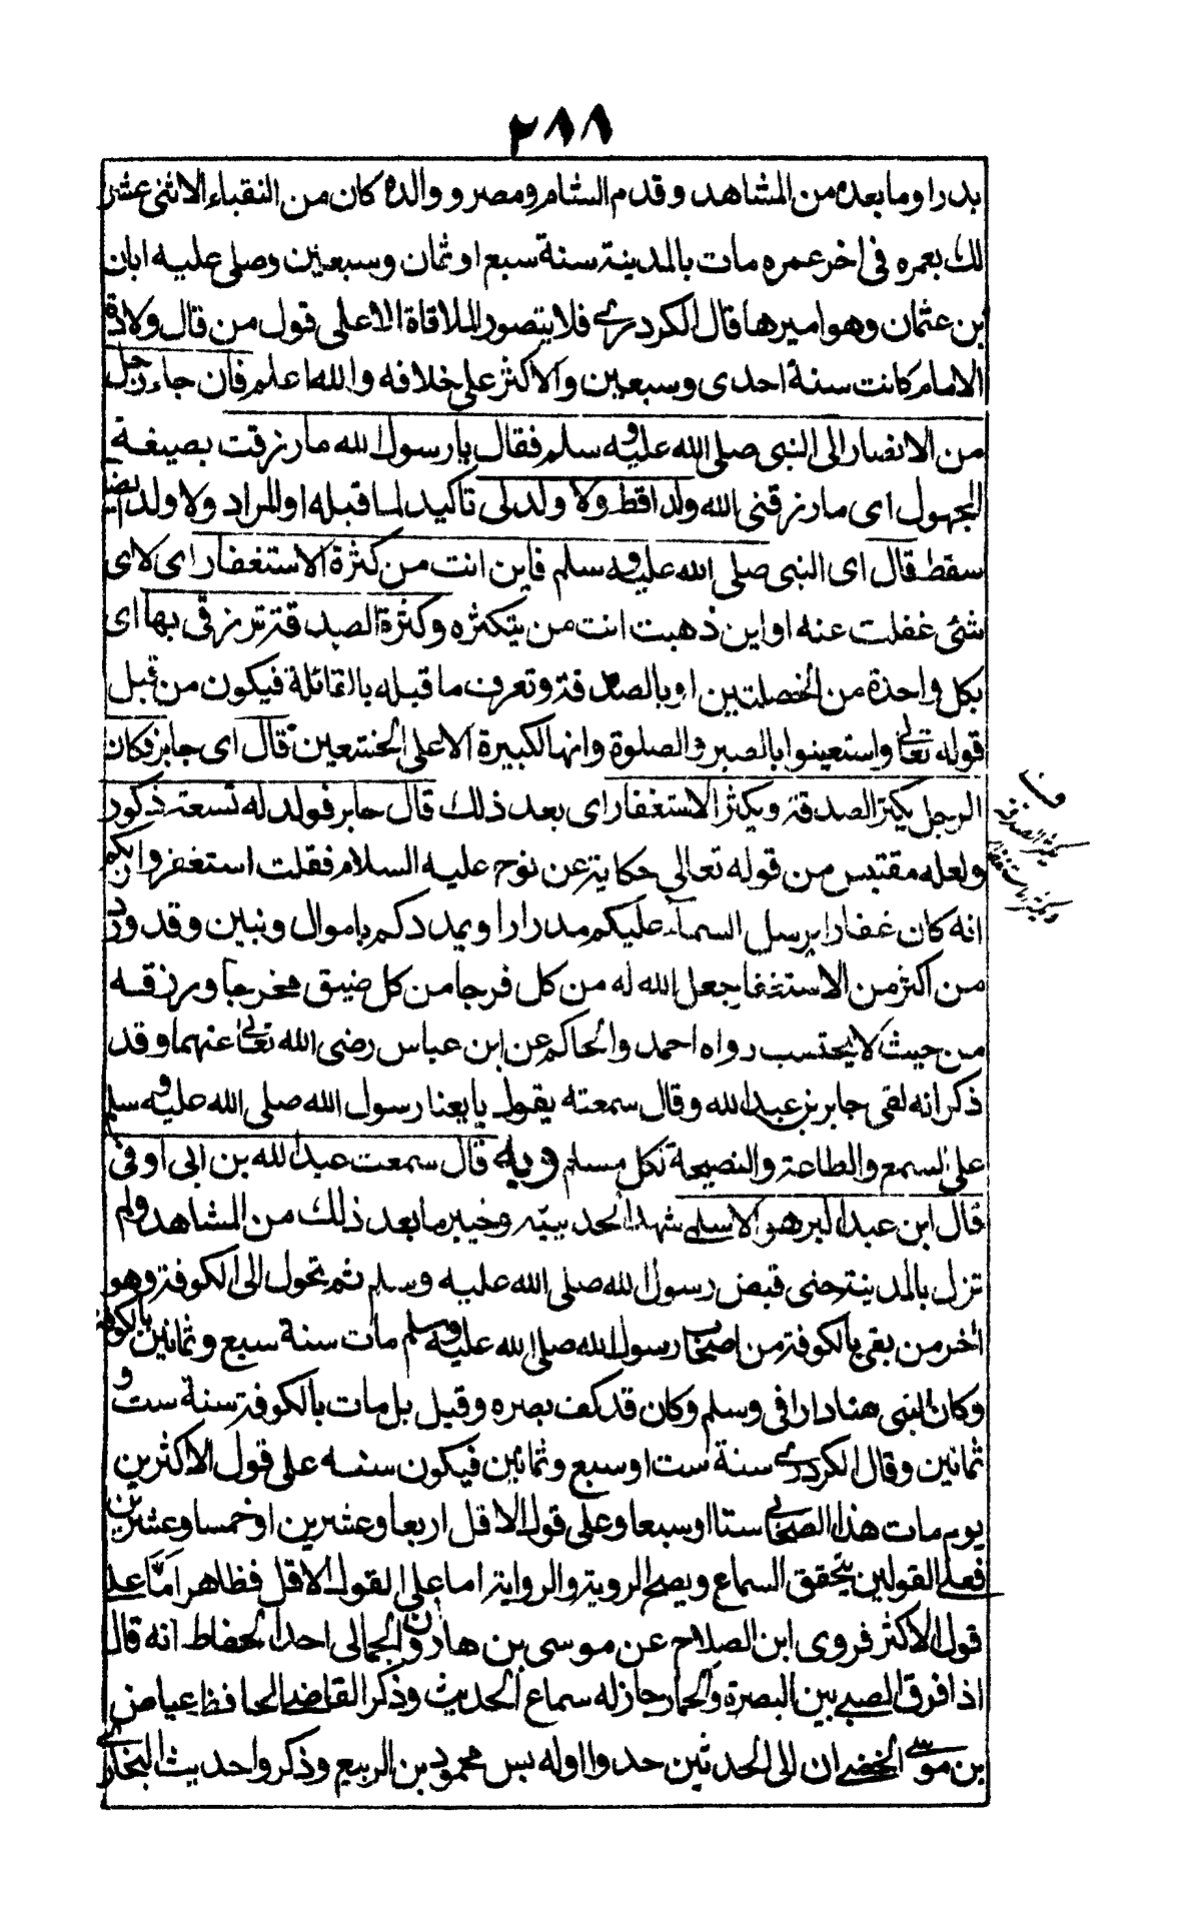 ٢٨٨
بدرا وما بعده من المشاهد وقدم الشام ومصر و والده كان من النقباء الاثنى عشر
لك بعمره فى اخر عمره مات بالمدينة سنة سبع او ثمان وسبعين وصلى عليه ابان
بن عثمان وهو اميرها قال الكردرى فلا يتصور الملاقاة الا على قول من قال ولادة
الامام كانت سنة احدى وسبعين والاكثر على خلافه والله اعلم فان جاء رجل
من الانصار الى النبى صلى الله عليه وسلم فقال يا رسول الله ما رزقت بصيغة
المجهول اى ما رزقنى الله ولدا قط ولا ولد لى تاكيد لما قبله او المراد ولا ولد
سقط قال اى النبى صلى الله عليه وسلم فاين انت من كثرة الاستغفار اى لاى
شئ غفلت عنه او اين ذهبت انت من يتكثره وكثرة الصدقة ترزق بها اى
بكل واحدة من الخصلتين او بالصدقة وتعرف ما قبله بالمقائلة فيكون من قبيل
قوله تعالى واستعينوا بالصبر والصلوة وانها لكبيرة الا على الخشعين قال اى جابر فكان
الرجل يكثر الصدقة ويكثر الاستغفار اى بعد ذلك قال جابر فولد له تسعة ذكور
ولعله مقتبس من قوله تعالى حكاية عن نوح عليه السلام فقلت استغفروا ربكم
انه كان غفارا يرسل السماء عليكم مدرارا ويمددكم باموال وبنين وقد ورد
من اكثر من الاستغفا جعل الله له من كل فرجا من كل ضيق مخرجا ورزقه
من حيث لا يحتسب رواه احمد والحاكم عن ابن عباس رضى الله تعالى عنهما وقد
ذكر انه لقى جابر بن عبد الله وقال سمعته يقول بايعنا رسول الله صلى الله عليه وسلم
على السمع والطاعة والنصيحة لكل مسلم وبه قال سمعت عبد الله بن ابى اوفى
قال ابن عبد البر هو الاسلمى شهد الحديبية وخيبر ما بعد ذلك من المشاهد ولم
تزل بالمدينة حتى قبض رسول الله صلى الله عليه وسلم ثم تحول الى الكوفة وهو
اخر من بقى بالكوفة من اصحاب رسول الله صلى الله عليه وسلم مات سنة سبع وثمانين بالكوفة
وكان ابنى هنا دارا فى وسلم وكان قد كف بصره وقيل بل مات بالكوفة سنة ست و
ثمانين وقال الكردرى سنة ست او سبع وثمانين فيكون سنه على قول الاكثرين
يوم مات هذا الصحابى ستا او سبعا وعلى قول الاقل اربعا وعشرين او خمسا وعشرين
فعلى القولين يتحقق السماع ويصح الروية والرواية اما على القول الاقل فظاهر اما على
قول الاكثر فروى ابن الصلاح عن موسى بن هارون الجمالى احد الحفاظ انه قال
اذا فرق الصبى بين البصرة والحمار جاز له سماع الحديث وذكر القاضى الحافظ عياض
بن موسى الخضى ان الى الحدثين حدوا اوله بس محمود بن الربيع وذكروا حديث البخارى